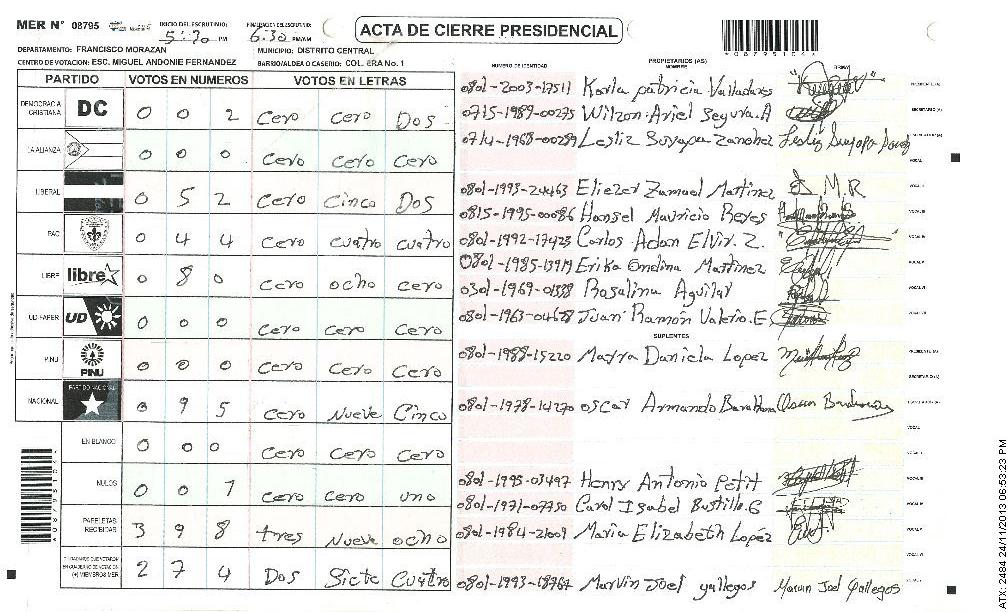 MER N° 08795 INICIO DEL ESCRUTINIO: 5:30 PM FINALIZACION DEL ESCRUTINIO: 6:30 PM/AM
ACTA DE CIERRE PRESIDENCIAL
DEPARTAMENTO: FRANCISCO MORAZAN MUNICIPIO: DISTRITO CENTRAL
CENTRO DE VOTACION: ESC. MIGUEL ANDONIE FERNANDEZ BARRIO/ALDEA O CASERIO: COL. ERA No. 1
PARTIDO VOTOS EN NUMEROS VOTOS EN LETRAS
DEMOCRACIA CRISTIANA DC 0 0 2 Cero Cero Dos
LA ALIANZA 0 0 0 Cero Cero Cero
LIBERAL 0 5 2 Cero Cinco Dos
PAC 0 4 4 Cero cuatro cuatro
LIBRE libre 0 8 0 Cero ocho cero
UD-FAPER UD 0 0 0 Cero Cero Cero
PINU PINU 0 0 0 Cero Cero Cero
NACIONAL PARTIDO NACIONAL 0 9 5 Cero Nueve Cinco
EN BLANCO 0 0 0 Cero Cero Cero
NULOS 0 0 1 Cero Cero uno
PAPELETAS RECIBIDAS 3 9 8 tres Nueve ocho
CIUDADANOS QUE VOTARON EN CUADERNO DE VOTACION (+) MIEMBROS MER 2 7 4 Dos Siete Cuatro
NUMERO DE IDENTIDAD PROPIETARIOS (AS) NOMBRES FIRMA
0801-2003-17511 Karla patricia Valladares
0715-1989-00275 Wilzon Ariel Segura.A
0714-1968-00259 Lesliz Suyapa Zanchez
0801-1993-24463 Eliezer Zamuel Martinez M.R
0815-1995-00086 Hansel Mauricio Reyes
0801-1992-17423 Carlos Adan Elvir. Z.
0801-1985-13919 Erika Ondina Martinez
0301-1969-01338 Rosalina Aguilar
0801-1963-04678 Juan Ramón Valerio.E
SUPLENTES
0801-1988-15220 Mayra Daniela Lopez
0801-1978-14270 oscar Armando Barahona
0801-1995-03497 Henry Antonio Petit
0801-1971-07750 Carol Isabel Bustillo.G
0801-1984-21009 Maria Elizabeth Lopéz
0801-1993-18764 Marvin Joel gallegos Marvin Joel Gallegos
*08795104*
ATX-2484 24/11/2013 06:53:23 PM